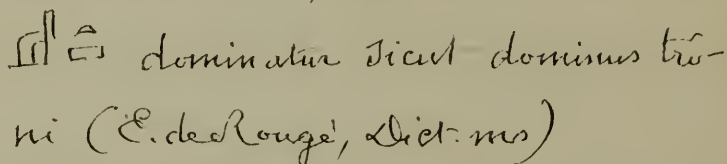 dominatur sicut dominus trô-
ni (E. de Rougé, Dict. ms)